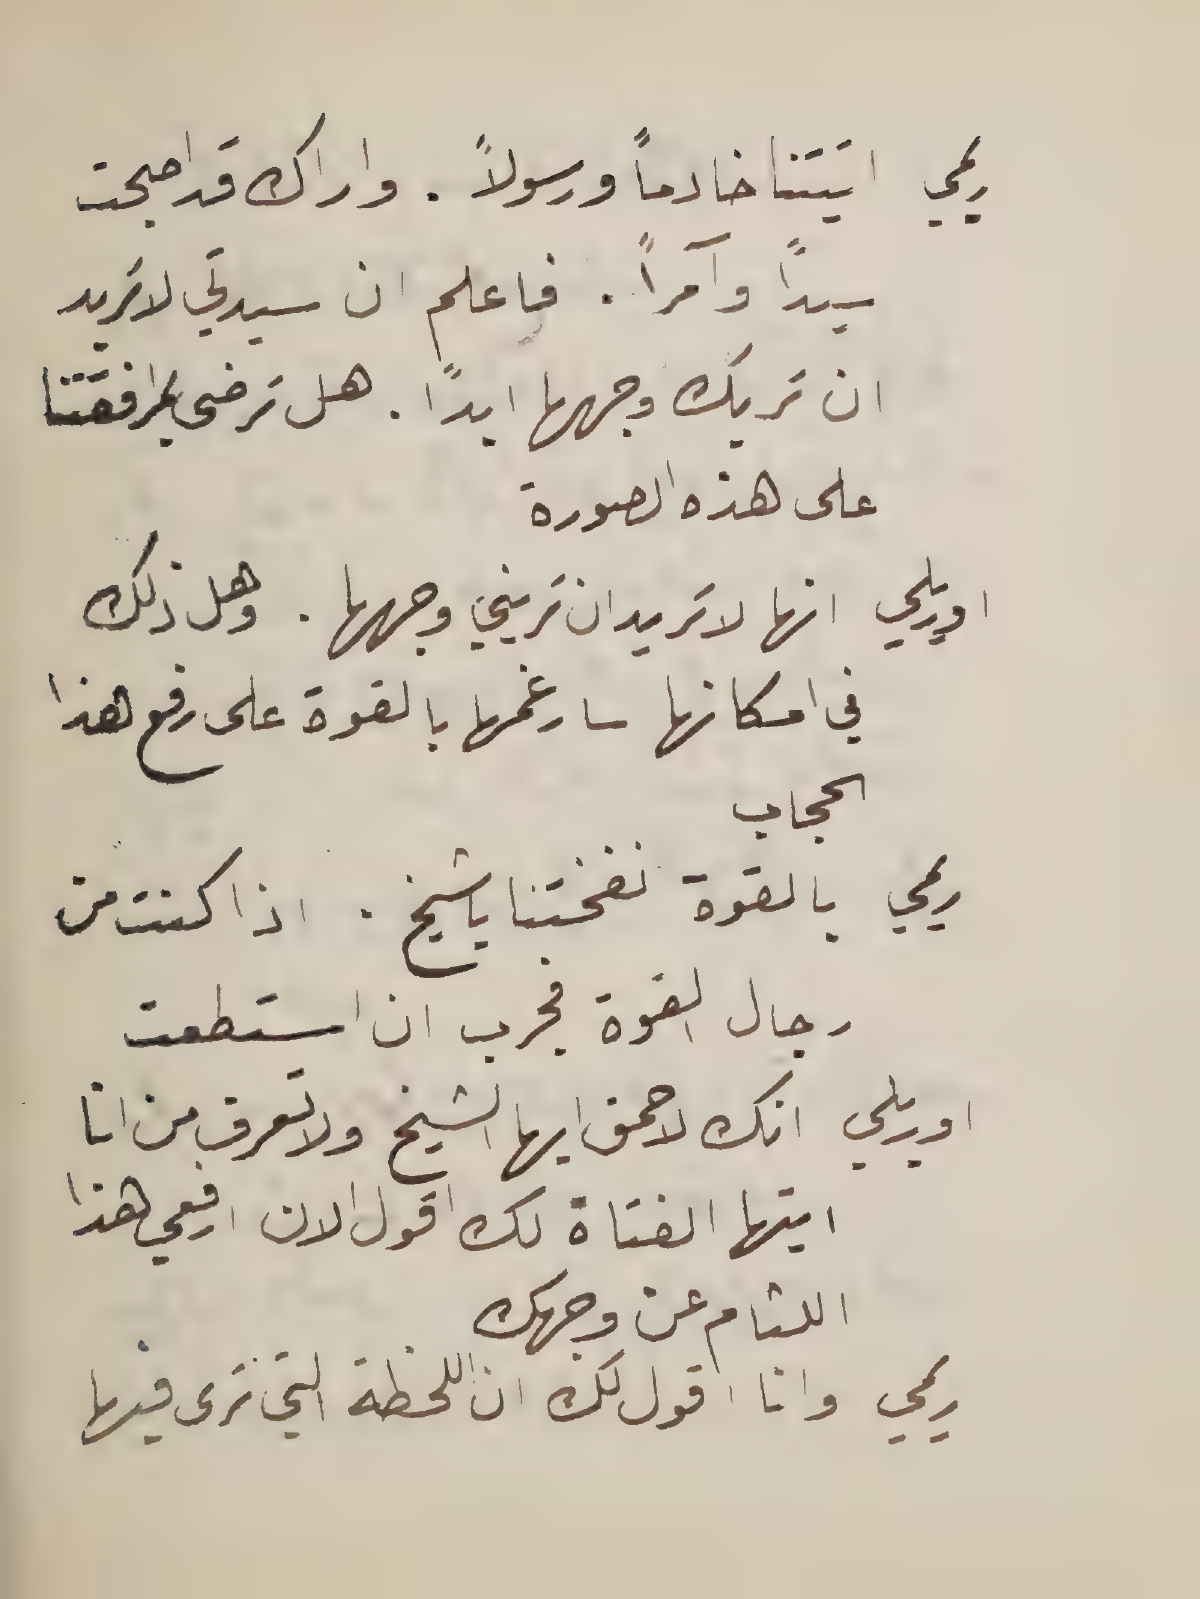 ريمي اتيتنا خادماً ورسولاً . واراك قد اصبحت
سيداً وآمراً . فاعلم ان سيدتي لا تريد
ان تريك وجهها ابداً . هل ترضى بمرافقتنا
على هذه الصورة
اوريلي انها لا تريد ان تريني وجهها . وهل ذلك
في امكانها سارغمها بالقوة على رفع هذا
الحجاب
ريمي بالقوة نفختنا يا شيخ . اذا كنت من
رجال القوة فجرب ان استطعت
اوريلي انك لاحمق ايها الشيخ ولا تعرف من انا
ايتها الفتاة لك اقول الان ارفعي هذا
اللثام عن وجهك
ريمي وانا اقول لك ان اللحظة التي ترى فيها